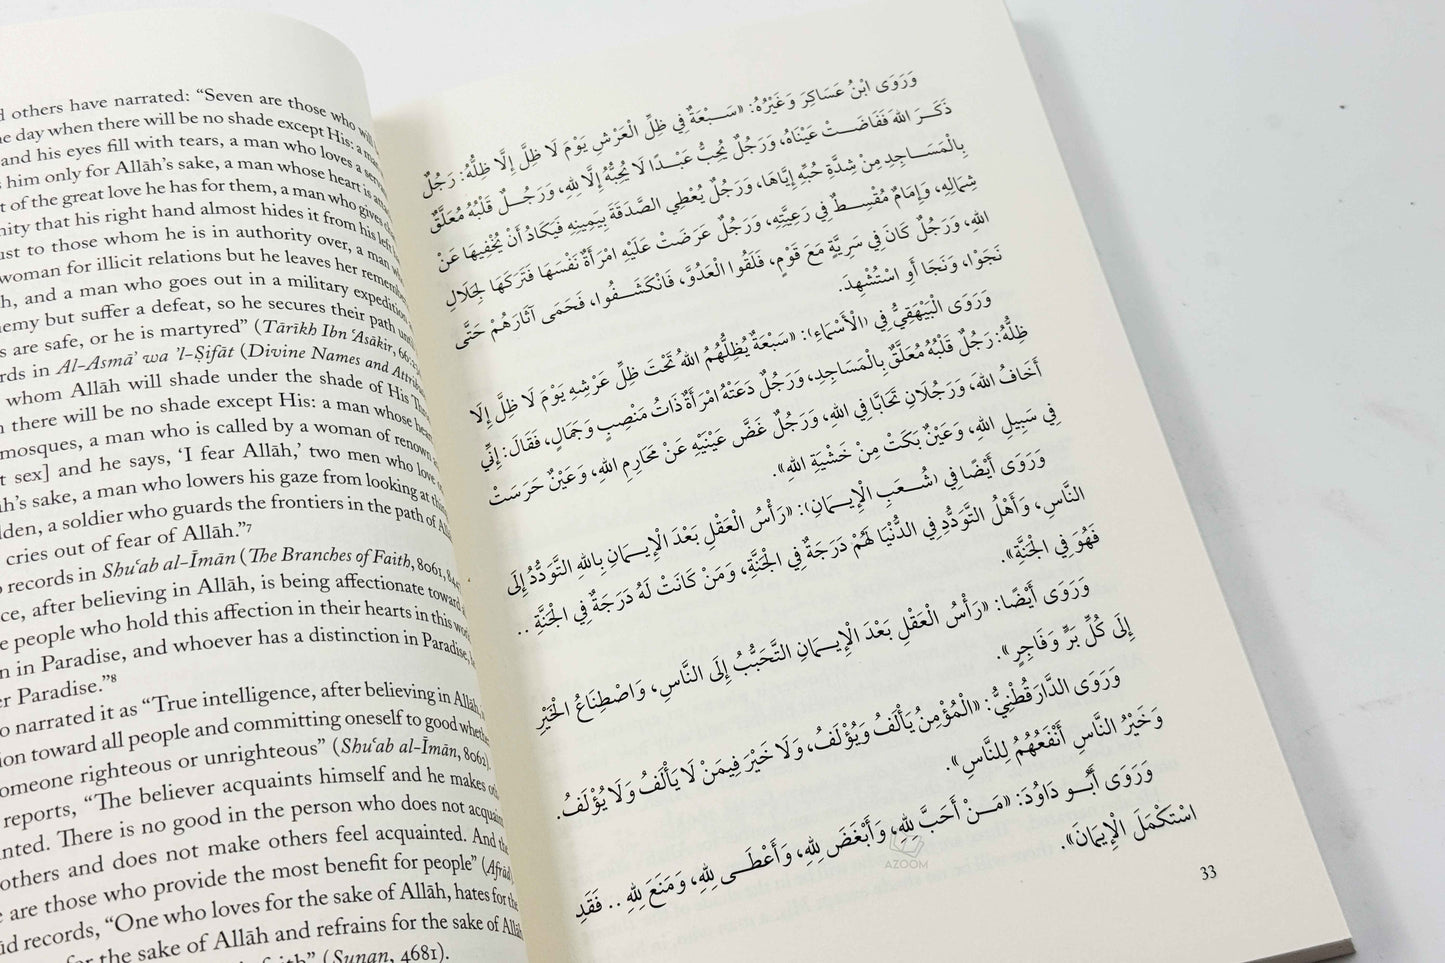 d others have narrated: “Seven are those who will
e day when there will be no shade except His: a
and his eyes fill with tears, a man who loves a
s him only for Allāh’s sake, a man whose heart is
t of the great love he has for them, a man who gives
nity that his right hand almost hides it from his left
ust to those whom he is in authority over, a man
woman for illicit relations but he leaves her
h, and a man who goes out in a military expedition
emy but suffer a defeat, so he secures their path
s are safe, or he is martyred” (Tārīkh Ibn ʿAsākir, 66:
rds in Al-Asmāʾ wa ’l-Ṣifāt (Divine Names and
whom Allāh will shade under the shade of His
n there will be no shade except His: a man whose
mosques, a man who is called by a woman of renown
t sex] and he says, ‘I fear Allāh,’ two men who love
āh’s sake, a man who lowers his gaze from looking at
lden, a soldier who guards the frontiers in the path of
cries out of fear of Allāh.”7
o records in Shuʿab al-Īmān (The Branches of Faith, 8061,
ce, after believing in Allāh, is being affectionate toward
e people who hold this affection in their hearts in this
n in Paradise, and whoever has a distinction in Paradise,
er Paradise.”8
o narrated it as “True intelligence, after believing in Allāh,
ion toward all people and committing oneself to good
omeone righteous or unrighteous” (Shuʿab al-Īmān, 8062).
reports, “The believer acquaints himself and he makes
nted. There is no good in the person who does not
others and does not make others feel acquainted. And the
e are those who provide the most benefit for people” (Afrād).
ūd records, “One who loves for the sake of Allāh, hates for the
for the sake of Allāh and refrains for the sake of Allāh
faith” (Sunan, 4681).
وَرَوَى ابْنُ عَسَاكِرَ وَغَيْرُهُ: «سَبْعَةٌ فِي ظِلِّ الْعَرْشِ يَوْمَ لَا ظِلَّ إِلَّا ظِلُّهُ: رَجُلٌ
ذَكَرَ اللهَ فَفَاضَتْ عَيْنَاهُ، وَرَجُلٌ يُحِبُّ عَبْدًا لَا يُحِبُّهُ إِلَّا لِلهِ، وَرَجُلٌ قَلْبُهُ مُعَلَّقٌ
بِالْمَسَاجِدِ مِنْ شِدَّةِ حُبِّهِ إِيَّاهَا، وَرَجُلٌ يُعْطِي الصَّدَقَةَ بِيَمِينِهِ فَيَكَادُ أَنْ يُخْفِيهَا عَنْ
شِمَالِهِ، وَإِمَامٌ مُقْسِطٌ فِي رَعِيَّتِهِ، وَرَجُلٌ عَرَضَتْ عَلَيْهِ امْرَأَةٌ نَفْسَهَا فَتَرَكَهَا لِجَلَالِ
اللهِ، وَرَجُلٌ كَانَ فِي سَرِيَّةٍ مَعَ قَوْمٍ، فَلَقُوا الْعَدُوَّ، فَانْكَشَفُوا، فَحَمَى آثَارَهُمْ حَتَّى
نَجَوْا، وَنَجَا أَوِ اسْتُشْهِدَ.
وَرَوَى الْبَيْهَقِيُّ فِي (الْأَسْمَاءِ): «سَبْعَةٌ يُظِلُّهُمُ اللهُ تَحْتَ ظِلِّ عَرْشِهِ يَوْمَ لَا ظِلَّ إِلَّا
ظِلُّهُ: رَجُلٌ قَلْبُهُ مُعَلَّقٌ بِالْمَسَاجِدِ، وَرَجُلٌ دَعَتْهُ امْرَأَةٌ ذَاتُ مَنْصِبٍ وَجَمَالٍ، فَقَالَ: إِنِّي
أَخَافُ اللهَ، وَرَجُلَانِ تَحَابَّا فِي اللهِ، وَرَجُلٌ غَضَّ عَيْنَيْهِ عَنْ مَحَارِمِ اللهِ، وَعَيْنٌ حَرَسَتْ
فِي سَبِيلِ اللهِ، وَعَيْنٌ بَكَتْ مِنْ خَشْيَةِ اللهِ».
وَرَوَى أَيْضًا فِي (شُعَبِ الْإِيمَانِ): «رَأْسُ الْعَقْلِ بَعْدَ الْإِيمَانِ بِاللهِ التَّوَدُّدُ إِلَى
النَّاسِ، وَأَهْلُ التَّوَدُّدِ فِي الدُّنْيَا لَهُمْ دَرَجَةٌ فِي الْجَنَّةِ، وَمَنْ كَانَتْ لَهُ دَرَجَةٌ فِي الْجَنَّةِ ..
فَهُوَ فِي الْجَنَّةِ».
وَرَوَى أَيْضًا: «رَأْسُ الْعَقْلِ بَعْدَ الْإِيمَانِ التَّحَبُّبُ إِلَى النَّاسِ، وَاصْطِنَاعُ الْخَيْرِ
إِلَى كُلِّ بَرٍّ وَفَاجِرٍ».
وَرَوَى الدَّارَقُطْنِيُّ: «الْمُؤْمِنُ يَأْلَفُ وَيُؤْلَفُ، وَلَا خَيْرَ فِيمَنْ لَا يَأْلَفُ وَلَا يُؤْلَفُ.
وَخَيْرُ النَّاسِ أَنْفَعُهُمْ لِلنَّاسِ».
وَرَوَى أَبُو دَاوُدَ: «مَنْ أَحَبَّ لِلهِ، وَأَبْغَضَ لِلهِ، وَأَعْطَى لِلهِ، وَمَنَعَ لِلهِ .. فَقَدِ
اسْتَكْمَلَ الْإِيمَانَ».
AZOOM
33